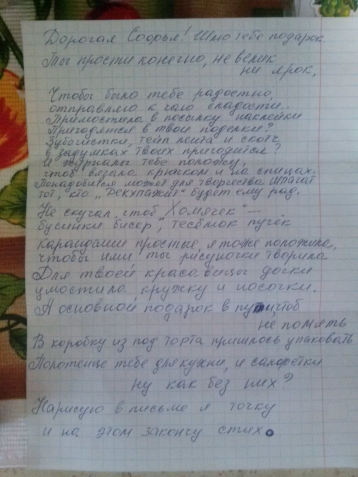 Дорогая Софья! Шлю тебе подарок.
Ты прости конечно, не велик
ни ярок,
Чтобы было тебе радостно,
отправляю к чаю сладости.
Примостила в посылку наклейки
Пригодятся в твои поделки?
Зубочистки, тейп лента и скотч,
в задумках твоих пригодится?
И журналы тебе положу,
чтоб вязала крючком и на спицах.
Понадобился может для творчества шпагат
тот, кто "Декупажит" будет ему рад.
Не скучал, чтоб Хомячек —
бусинки бисер, тесёмок пучок
Карандаши простые, я тоже положила,
чтобы ими ты рисуночки творила
Для твоей красавицы дочки
умостила кружку и носочки.
А основной подарок в пути чтоб
не помять
В коробку из под торта пришлось упаковать
Полотенце тебе для кухни, и салфетки
ну как без них?
Нарисую в письме я точку
и на этом закончу стих.